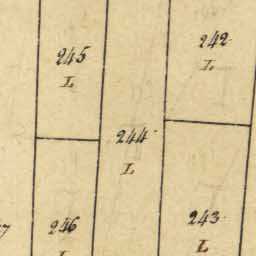 242
L
245
L
244
L
243
L
246
L